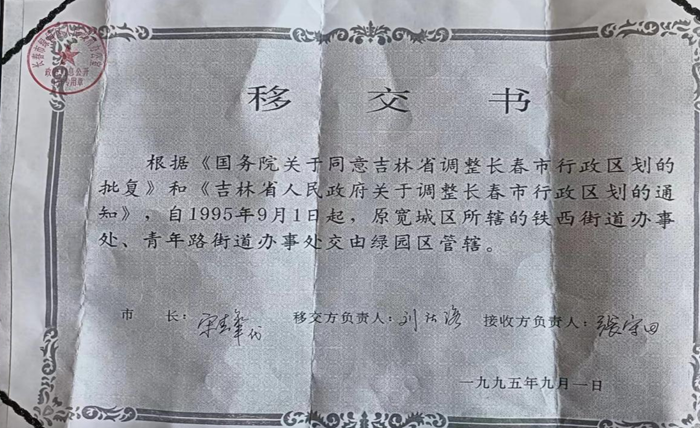 移交书
根据《国务院关于同意吉林省调整长春市行政区划的
批复》和《吉林省人民政府关于调整长春市行政区划的通
知》，自1995年9月1日起，原宽城区所辖的铁西街道办事
处、青年路街道办事处交由绿园区管辖。
市 长： 代 移交方负责人：刘 接收方负责人：张守田
一九九五年九月一日